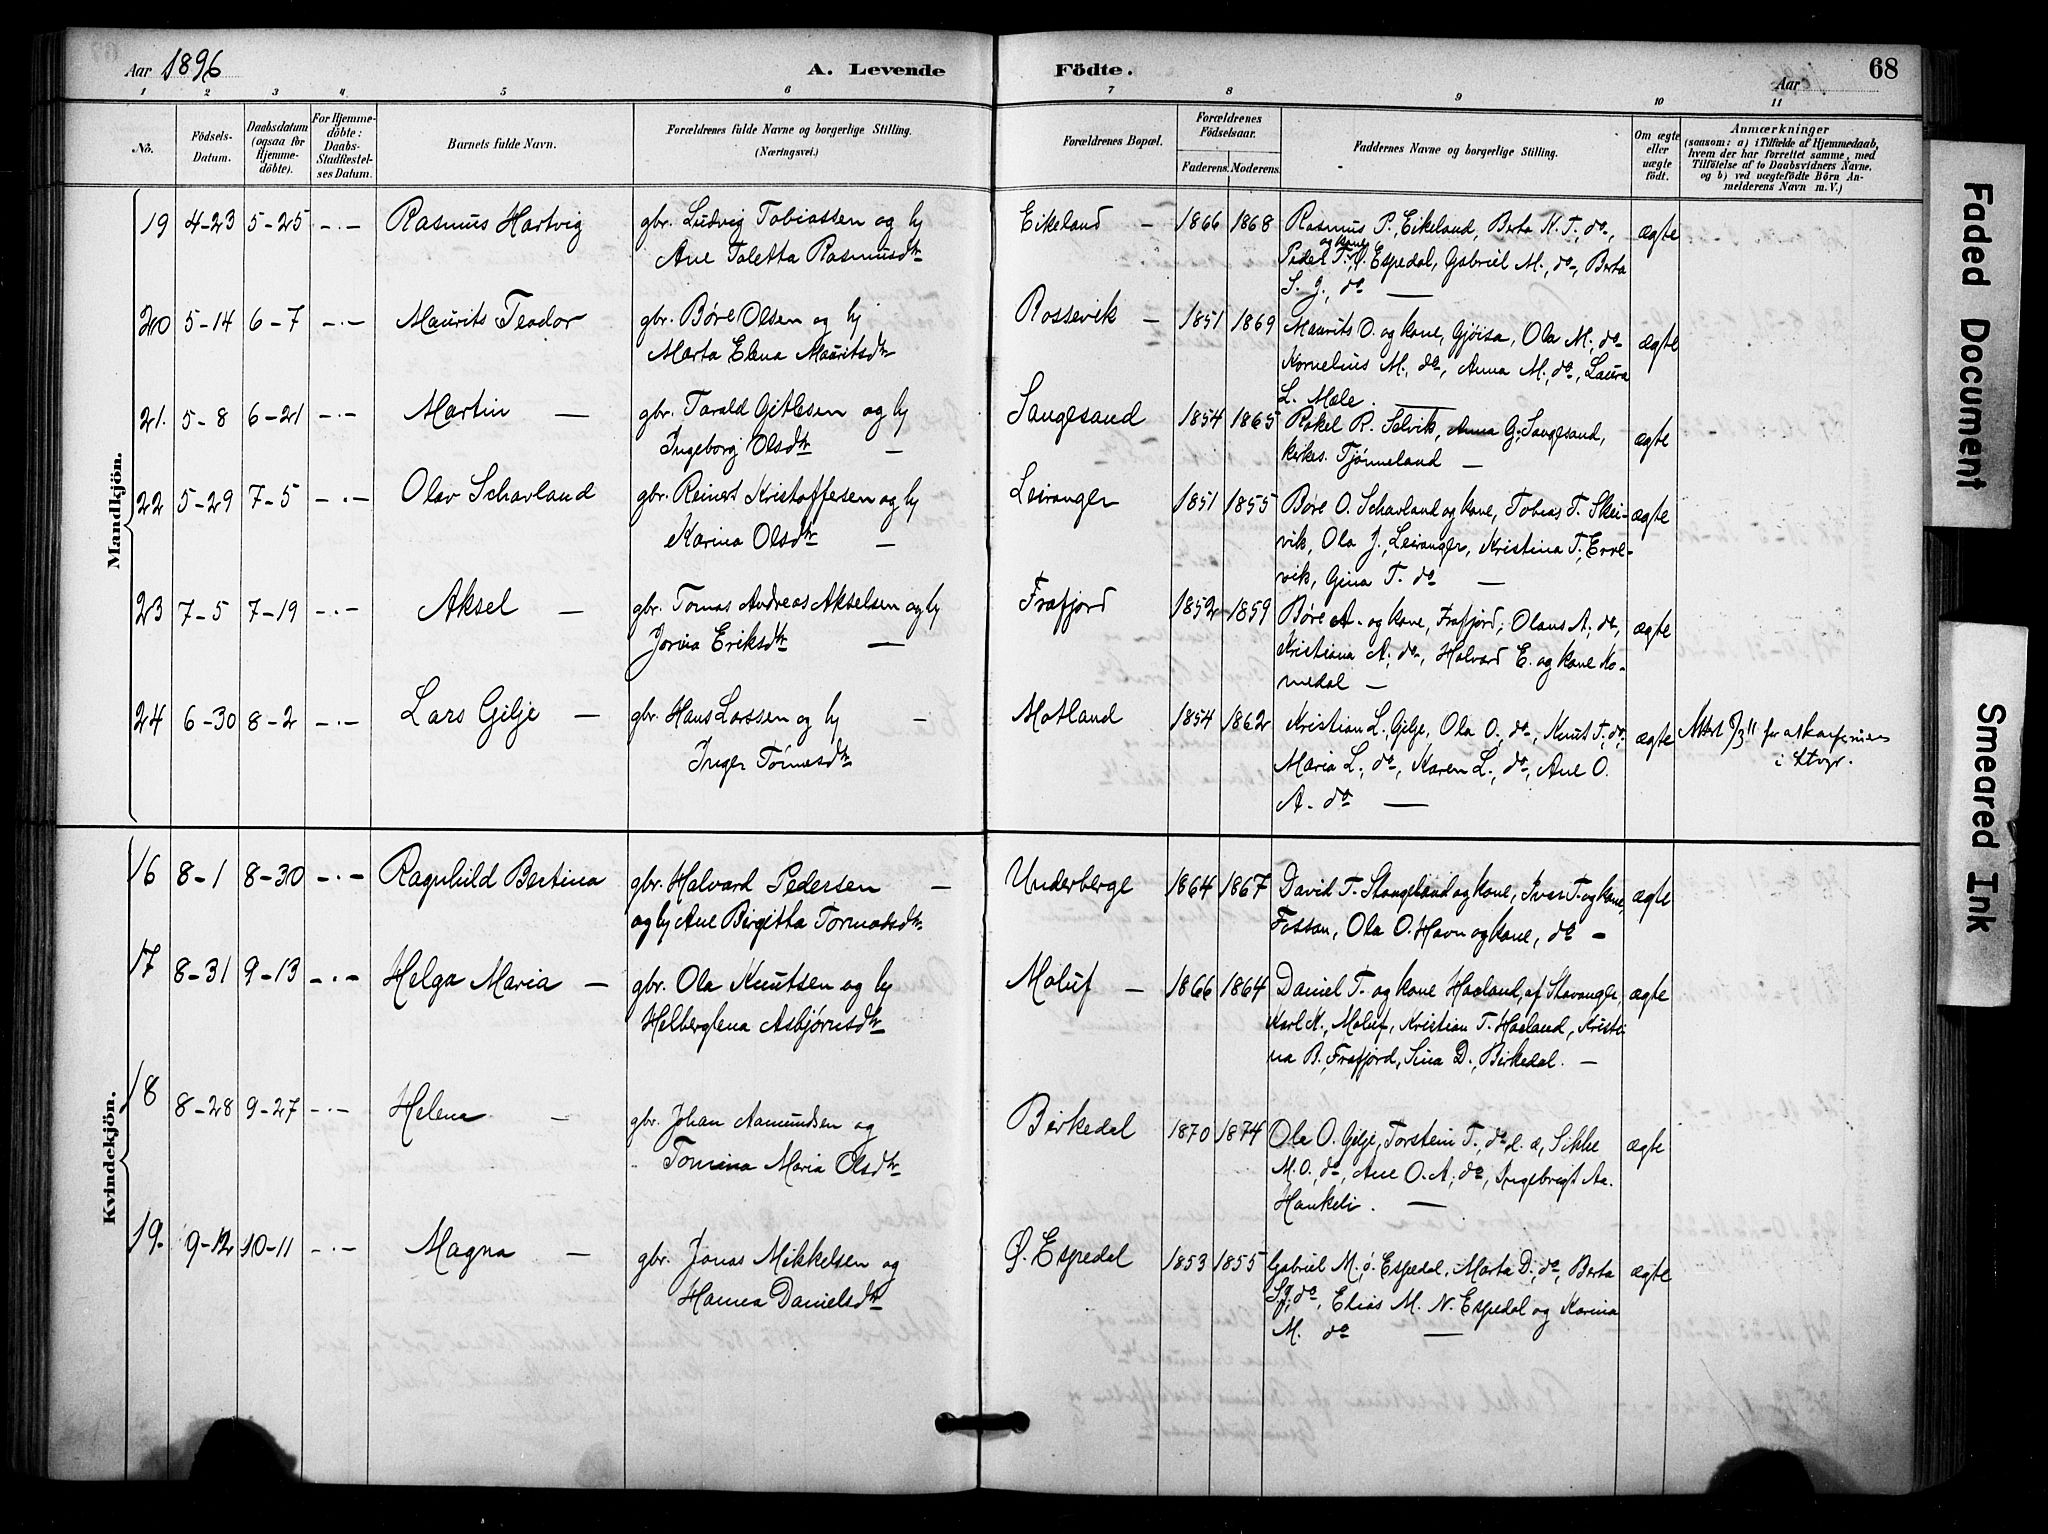 Aar 1896
A. Levende Födte.
Aar
68
1 2 3 4 5 6 7 8 9 10 11
No.
Födsels-
Datum.
Daabsdatum
(ogsaa for
Hjemme-
döbte).
For Hjemme-
döbte:
Daabs-
Stadfæstel-
ses Datum.
Barnets fulde Navn.
Forældrenes fulde Navne og borgerlige Stilling.
(Næringsvei.)
Forældrenes Bopæl.
Forældrenes
Födselsaar.
Faderens. Moderens.
Faddernes Navne og borgerlige Stilling.
Om ægte
eller
uægte
födt.
Anmærkninger
(saasom: a) i Tilfælde af Hjemmedaab,
hvem der har forrettet samme, med
Tilföielse af to Daabsvidners Navne,
og b) ved uægtefödte Börn An-
melderens Navn m. V.)
Mandkjön.
19 4-23 5-25 -.- Rasmus Hartvig gbr. Ludvig Tobiassen og hj Eikeland - 1866 1868 Rasmus P., Eikeland, Berta K. T., do, ægte
Ane Taletta Rasmusdtr
og kone
Peder T. Ø. Espedal, Gabriel M., do, Berta
S. G., do —
20 5-14 6-7 -.- Maurits Teodor gbr. Børe Olsen og hj Rossevik - 1851 1869 Maurits O. og kone, Gjøisa, Ola M., do ægte
Marta Elena Mauritsdtr
Kornelius M., do, Anna M., do, Laura
L. Mæle. —
21. 5-8 6-21 -.- Martin — gbr. Tarald Gitlesen og hj Sangesand 1854 1865 Rakel R. Selvik, Anna G. Sangesand, ægte
Ingeborg Olsdtr —
kirkes. Tjønneland —
22 5-29 7-5 -.- Olav Schavland gbr. Reinert Kristoffersen og hj Leiranger 1851 1855 Børe O. Schavland og kone, Tobias T. Skei- ægte
Karina Olsdtr —
vik, Ola J., Leiranger, Kristina T. Erve-
vik, Gina T. do —
23 7-5 7-19 -.- Aksel — gbr. Tomas Andreas Akselsen og hj Frafjord 1852 1859 Børe A. og kone, Frafjord, Olaus A., do, ægte
Jorina Eriksdtr —
Kristiana A., do, Halvard E. og kone Ko-
medal —
24 6-30 8-2 -.- Lars Gilje — gbr. Hans Larssen og hj — Motland 1854 1862 Kristian L. Gilje, Ola O., do, Knut T., do, ægte
Inger Tørresdtr
Maria L., do, Karen L., do, Ane O.
A. do —
Kvindekjön.
16 8-1 8-30 -.- Ragnhild Bertina gbr. Halvard Pedersen — Underberge 1864 1867 David T. Stangeland og kone, Iver T. og kone, ægte
og hj Ane Birgitta Tormodsdtr.
Fossan, Ola O. Havn og kone, do —
17 8-31 9-13 -.- Helga Maria — gbr. Ola Knutsen og hj Moluf — 1866 1864 Daniel T. og kone Haaland, af Stavanger, ægte
Helberglena Asbjørnsdtr
Karl K., Moluf, Kristian T. Haaland, Kristi
na B. Frafjord, Sina D., Birkedal. —
18 8-28 9-27 -.- Helene — gbr. Johan Aamundsen og Birkedal 1870 1874 Ola O. Gilje, Torstein T., do l. a, Sikke ægte
„ Tomina Maria Olsdtr
M. O. do, Ane O. A., do, Ingebregt Aa.
Haukeli. —
19. 9-12 10-11 -.- Magna — gbr. Jonas Mikkelsen og Ø. Espedal 1853 1855 Gabriel M., ø. Espedal, Marta D., do, Berta ægte
Hanna Danielsdtr
S. g., do, Elias M. N. Espedal og Karina
M. do —
Faded Document
Smeared Ink